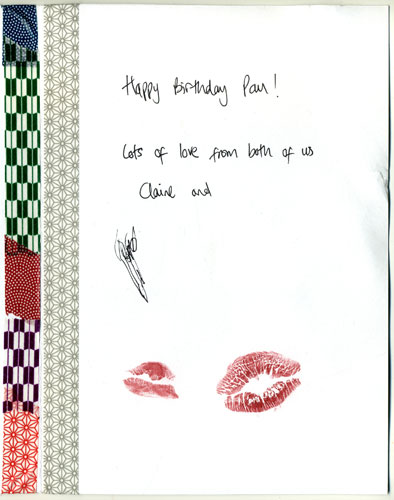 Happy Birthday Pam!
Lots of love from both of us
Claire and